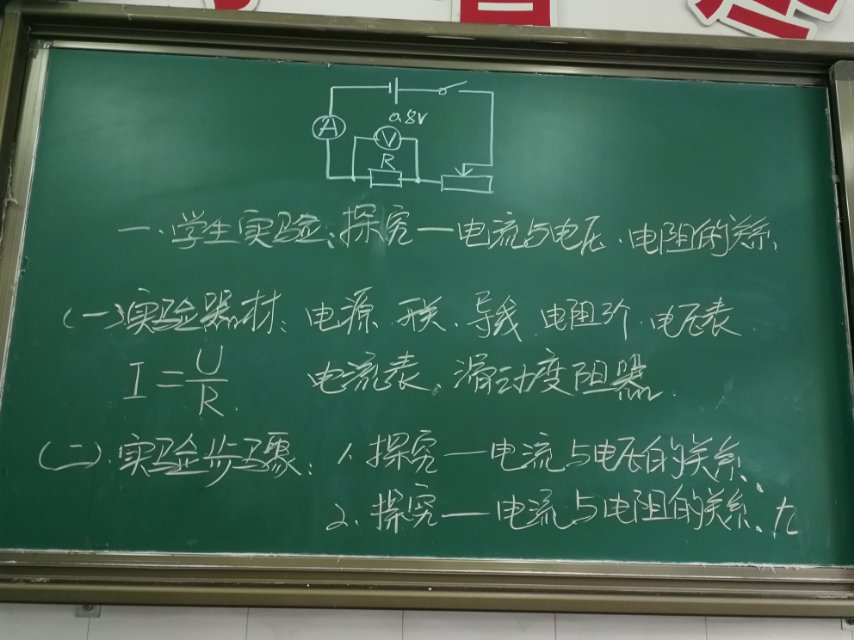 A
0.8V
V
R
一.学生实验:探究一电流与电压.电阻的关系
(一)实验器材:电源.开关.导线.电阻.电压表
I=U/R. 电流表.滑动变阻器.
(二).实验步骤:1.探究一电流与电压的关系.
2.探究一电流与电阻的关系.